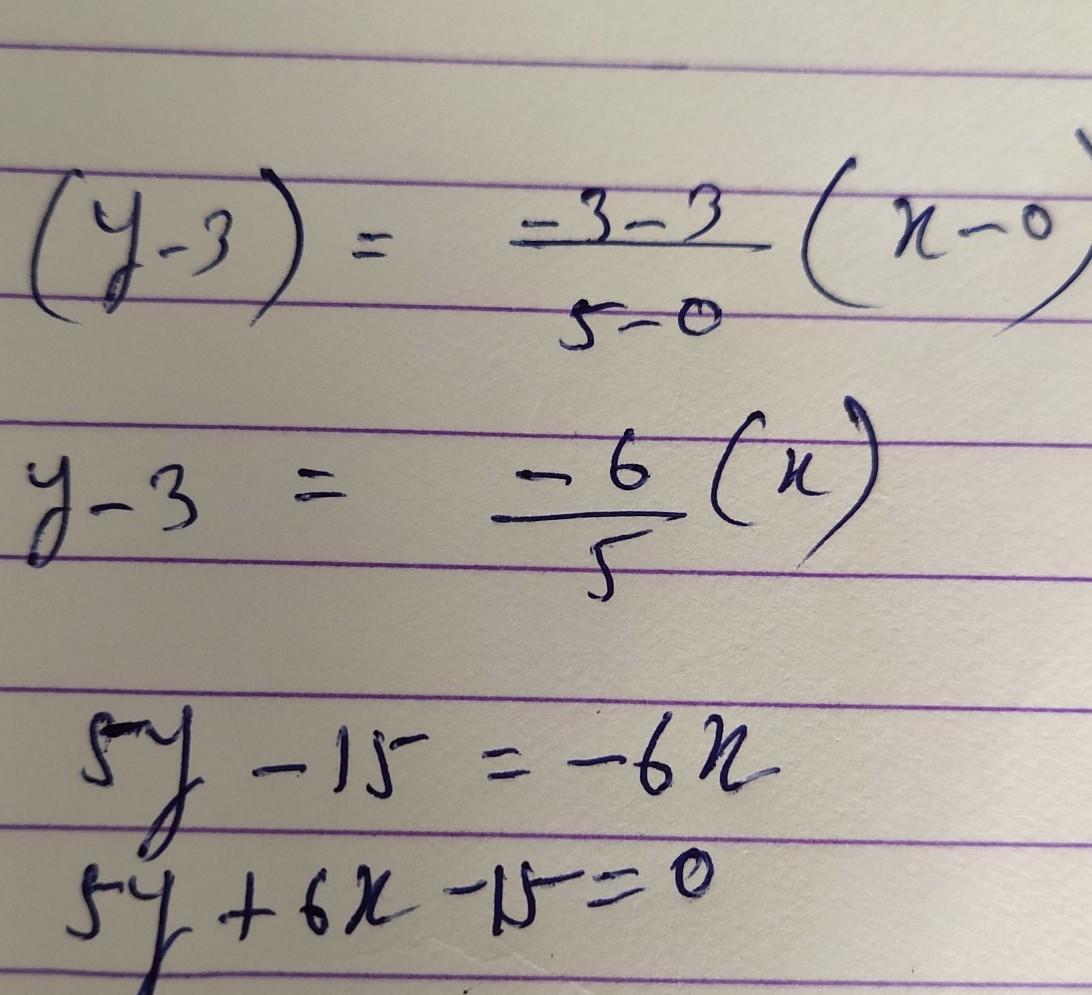 (y-3) = \frac{-3-3}{5-0} (x-0)
y-3 = \frac{-6}{5} (x)
5y - 15 = -6x
5y + 6x - 15 = 0